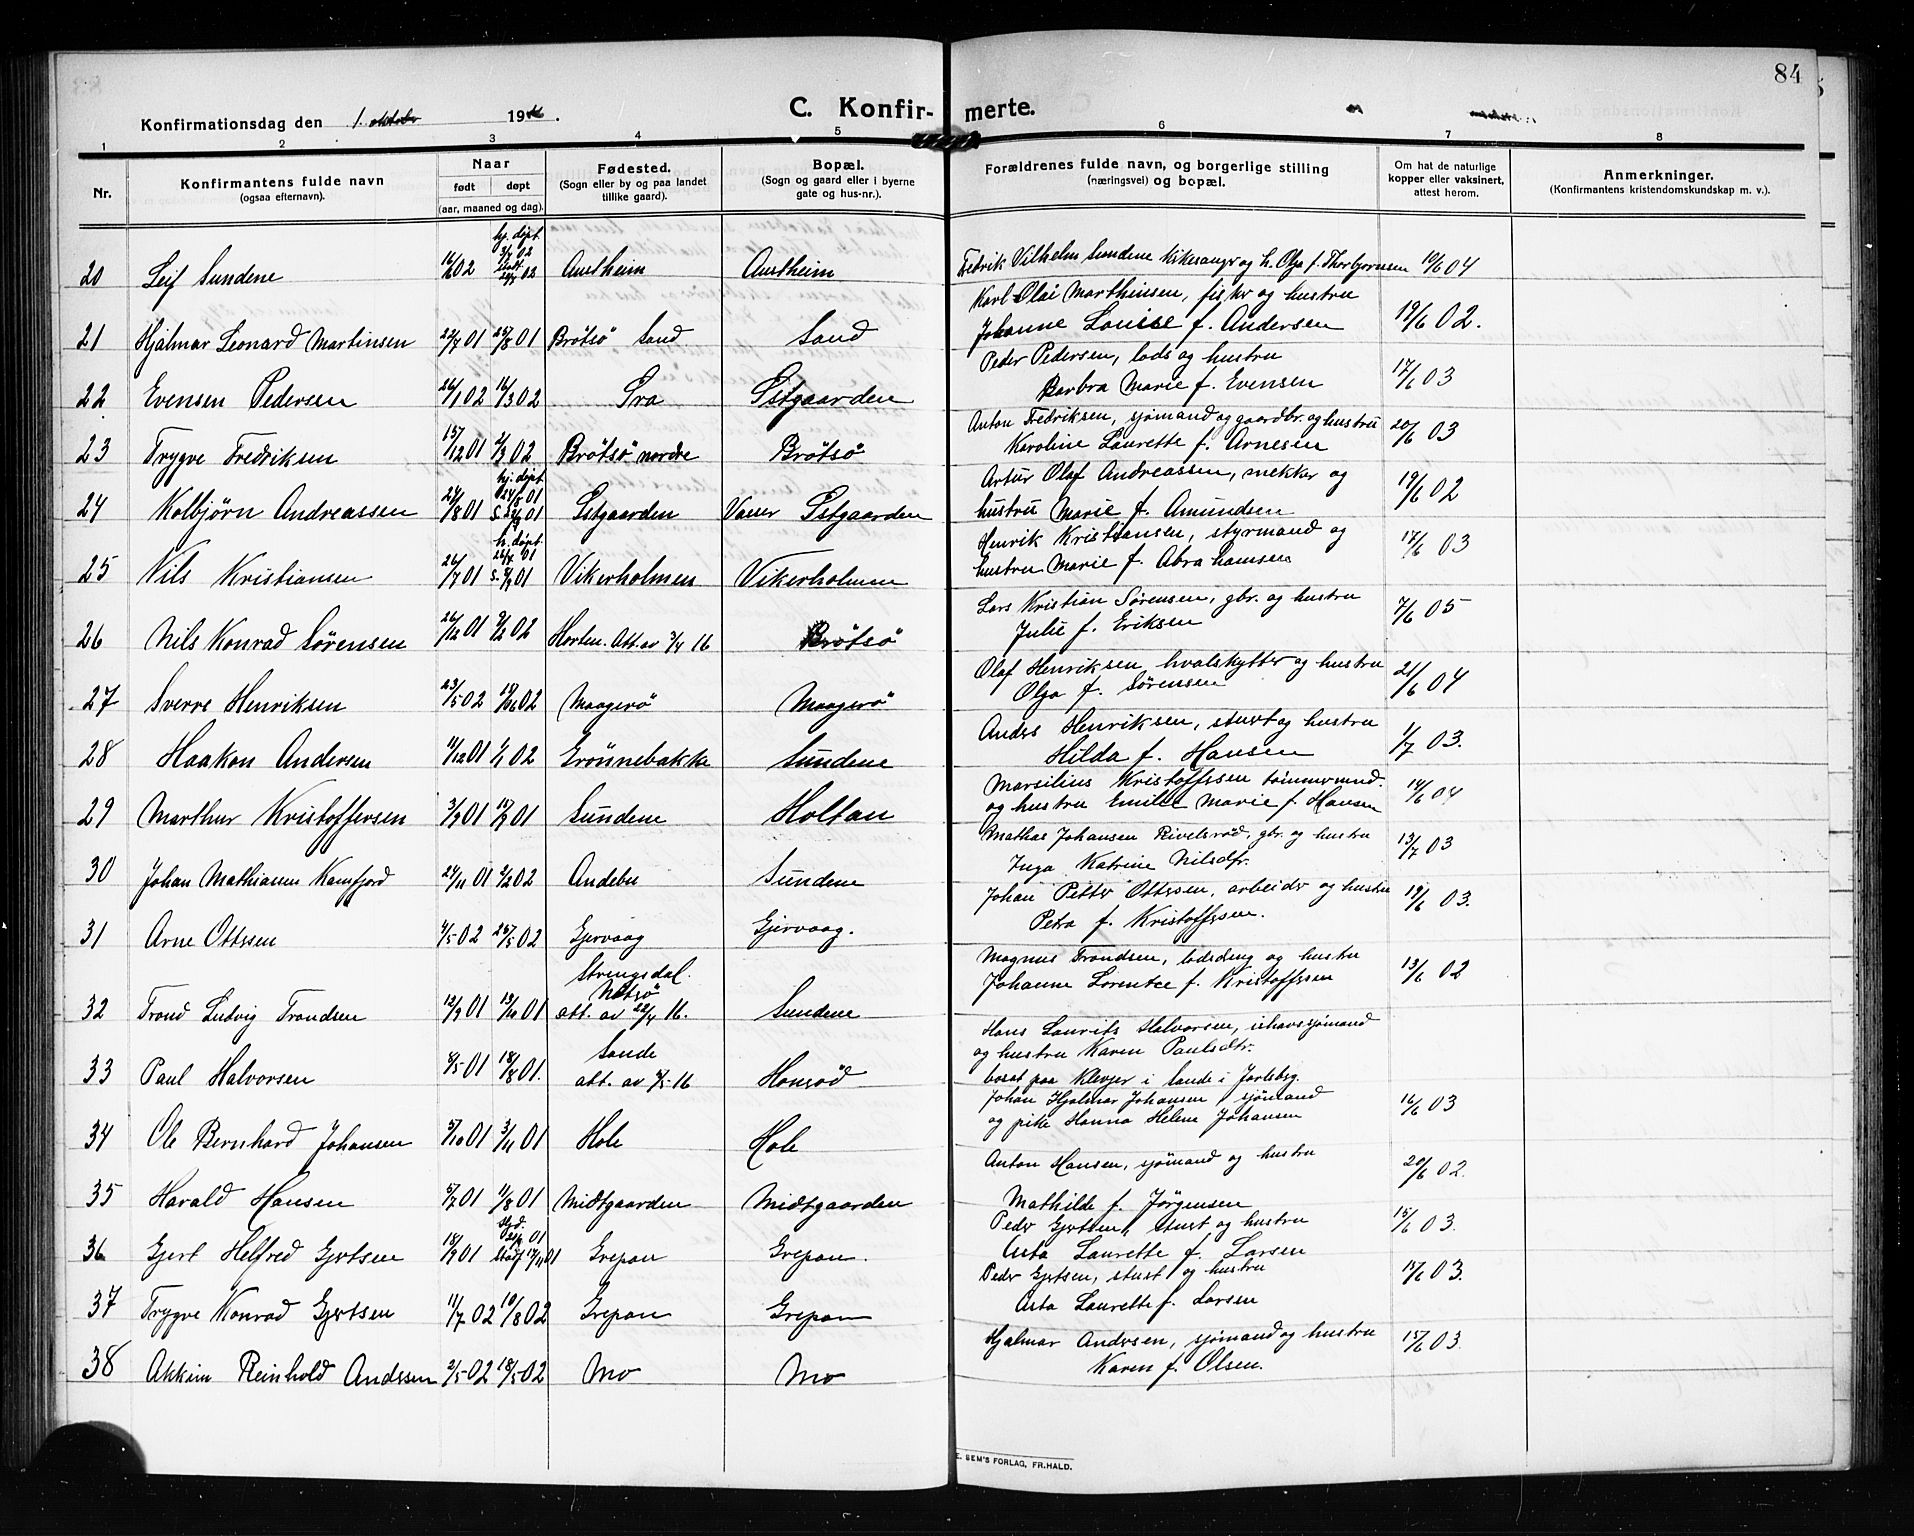 84
C. Konfir- merte.
Konfirmationsdag den 1. oktober 1916.
1 2 3 4 5 6 7 8
Nr. Konfirmantens fulde navn (ogsaa efternavn). Naar født døpt (aar, maaned og dag). Fødested. (Sogn eller by og paa landet tillike gaard). Bopæl. (Sogn og gaard eller i byerne gate og hus-nr.). Forældrenes fulde navn, og borgerlige stilling (næringsvei) og bopæl. Om hat de naturlige kopper eller vaksinert, attest herom. Anmerkninger. (Konfirmantens kristendomskundskap m. v.).
20 Leif Sundene 02 hj. døpt Austheim Austheim Fedrik Vilhelm Sundene kirkesanger og h. Olga f. Thorbjørnsen 19/6 04
21 Hjalmar Leonard Martinsen 22/7 01 25/8 01 Brøtsö Sand Sand Karl Olai Marthinsen, fisker og hustru
Johanne Louise f. Andersen 19/6 02.
22 Evensen Pedersen 26/1 02 16/3 02 Øra Østgaarden Peder Pedersen, lods og hustru
Barbra Marie f. Evensen 17/6 03
23 Trygve Fredriksen 15/12 01 2/3 02 Brøtsö nordre Brøtsö Anton Fedriksen, sjømand og gaardbr. og hustru
Karoline Laurette f. Arnesen 20/6 03
24 Kolbjørn Andreassen 24/8 01 hj. døpt Østgaarden Vasser Østgaarden Artur Olaf Andreassen, snekker og
hustru Marie f. Amundsen 19/6 02
25 Nils Kristiansen 26/7 01 h. døpt Vikerholmen Vikerholmen Henrik Kristiansen, styrmand og
hustru Marie f. Abrahamsen 17/6 03
26 Nils Konrad Sørensen 26/12 01 9/2 02 Horten. Att. av 3/4 16 Brøtsö Lars Kristian Sørensen, gbr. og hustru
Julie f. Eriksen 7/6 05
27 Sverre Henriksen 23/5 02 02 Maagerö Maagerö Olaf Henriksen, hvalskytter og hustru
Olga f. Sørensen 21/6 04
28 Haakon Andersen 11/12 01 1/1 02 Grønnebakke Sundene Anders Henriksen, stuert og hustru
Hilda f. Hansen 1/7 03.
29 Marthur Kristoffersen 3/9 01 01 Sundene Holtan Marsilius Kristoffersen tømmermand.
og hustru Emilie Marie f. Hansen 14/6 04
30 Johan Mathiassen Kamfjord 24/11 01 2/2 02 Andebu Sundene Mathas Johansen Rivelsrød, gbr. og hustru
Inga Katrine Nilsdtr. 13/7 03
31 Arne Ottesen 4/5 02 25/5 02 Gjervaag Gjervaag. Johan Petter Ottesen, arbeider og hustru
Petra f. Kristoffersen. 19/6 03.
32 Trond Ludvig Trondsen 12/9 01 13/10 01 Strengsdal. Nøtsö
att. av 22/4 16. Sundene Magnus Trondsen, lodsdreng og hustru
Johanne Lorentce f. Kristoffersen 13/6 02
33 Paul Halvorsen 8/5 01 18/8 01. Sande
att. av 4/5-16 Honsød Hans Laurits Halvorsen, ishavssjømand
og hustru Karen Paulsdtr.
bosat paa Klevjer i Sande i Jarlsbg.
34 Ole Bernhard Johansen 5/10 01 3/11 01 Hole Hole Johan Hjalmar Johansen sjømand
og pike Hanna Helene Johansen 16/6 03
35 Harald Hansen 5/7 01 11/8 01 Midtgaarden Midtgaarden Anton Hansen, sjømand og hustru
Mathilde f. Jørgensen 20/6 02.
36 Gjert Helfred Gjertsen 18/9 01 01 Grepan Grepan. Peder Gjertsen, stuert og hustru
Asta Laurette f. Larsen 15/6 03.
37 Trygve Konrad Gjertsen 11/7 02 10/8 02 Grepan Grepan Peder Gjertsen, stuert og hustru
Asta Laurette f. Larsen 15/6 03.
38 Akkim Reinhold Andersen 2/5 02 18/5 02 Mo Mo Hjalmar Andersen, sjømand og hustru
Karen f. Olsen. 15/6 03.
E. SEM'S FORLAG, FR.HALD.